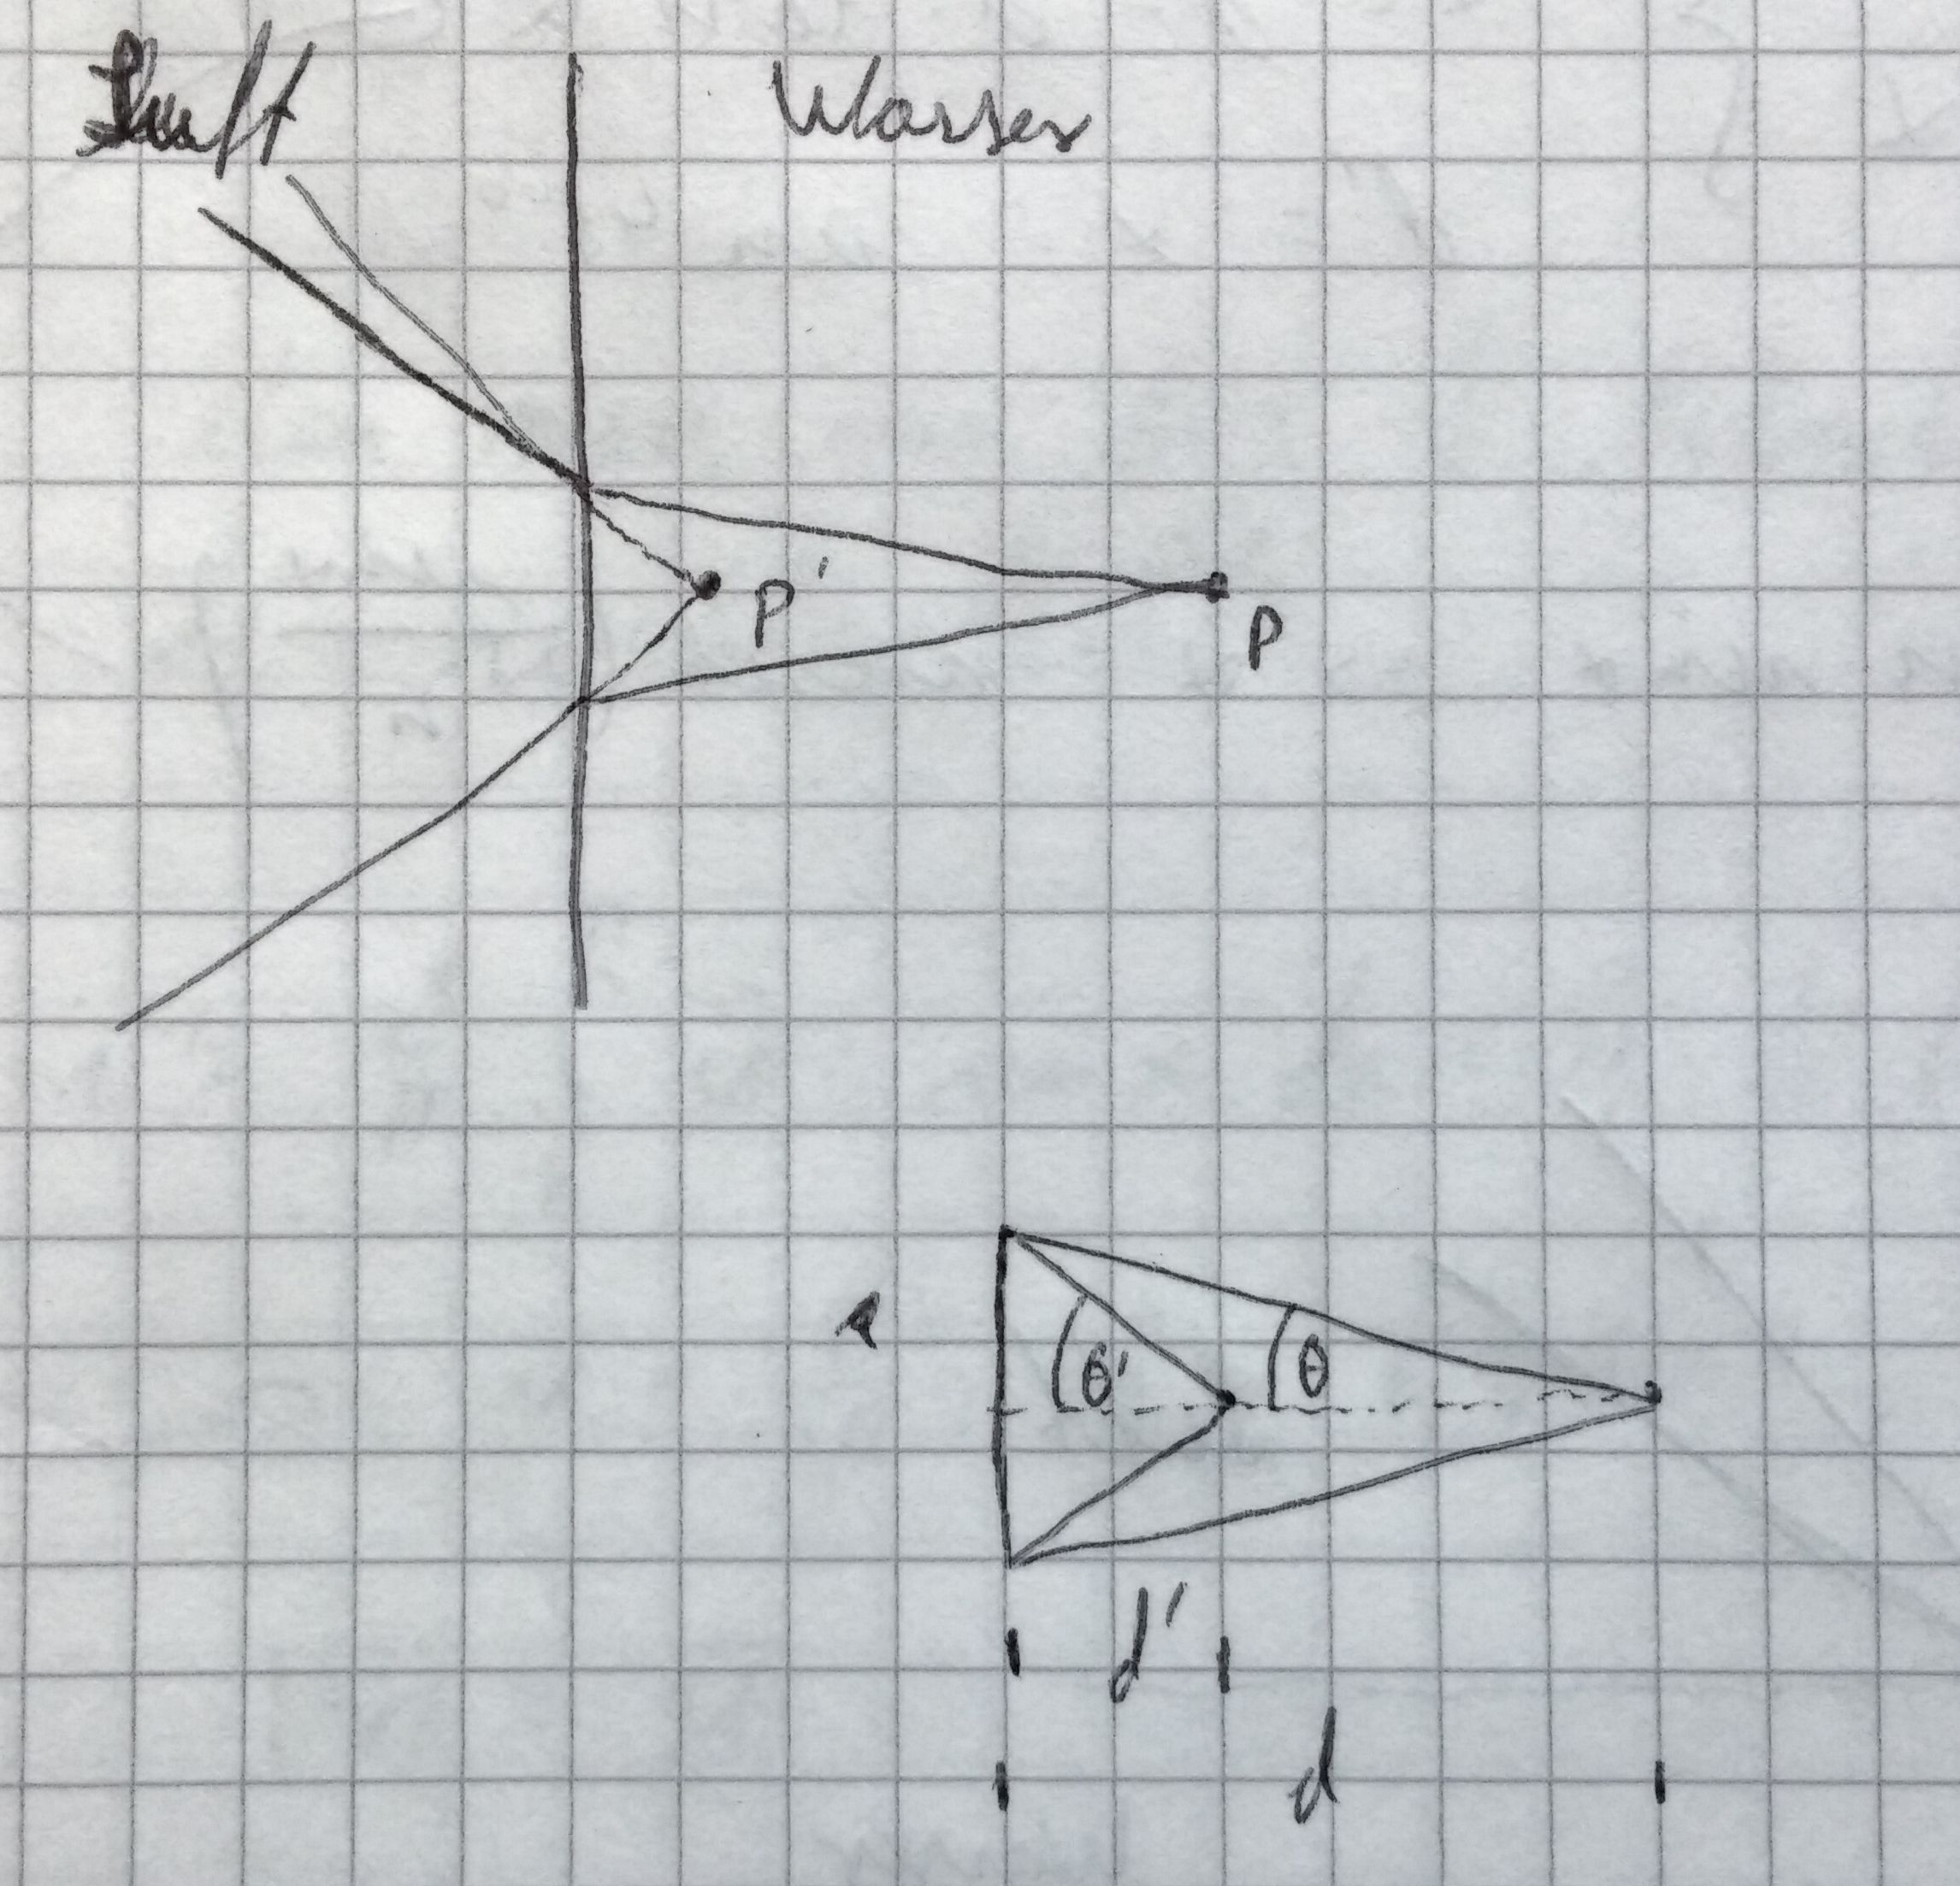 Luft Wasser
P'
P
θ' θ
d'
d